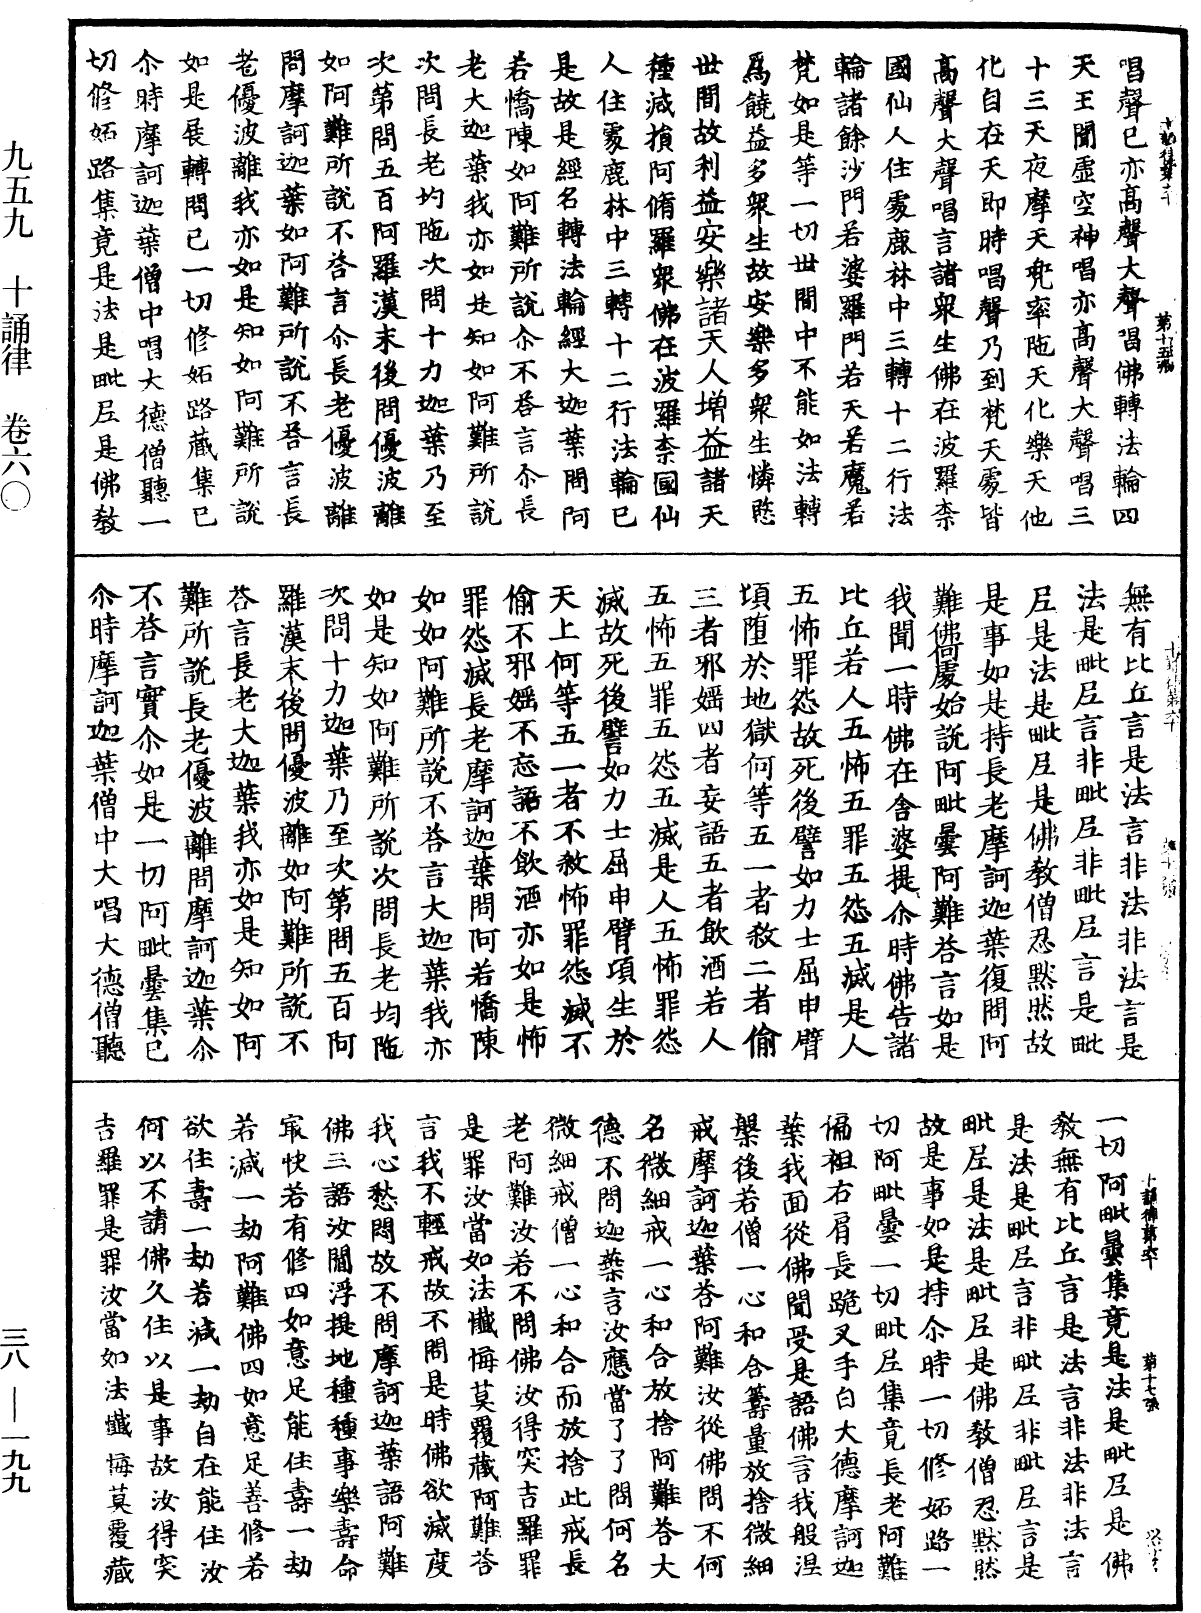 唱聲已亦高聲大聲唱佛轉法輪四
天王聞虛空神唱亦高聲大聲唱三
十三天夜摩天兜率陁天化樂天他
化自在天即時唱聲乃到梵天處皆
高聲大聲唱言諸衆生佛在波羅柰
國仙人住處鹿林中三轉十二行法
輪諸餘沙門若婆羅門若天若魔若
梵如是等一切世間中不能如法轉
爲饒益多衆生故安樂多衆生憐愍
世間故利益安樂諸天人增益諸天
種減損阿脩羅衆佛在波羅柰國仙
人住處鹿林中三轉十二行法輪已
是故是經名轉法輪經大迦葉問阿
若憍陳如阿難所說尒不荅言尒長
老大迦葉我亦如是知如阿難所說
次問長老均陁次問十力迦葉乃至
次第問五百阿羅漢末後問優波離
如阿難所說不荅言尒長老優波離
問摩訶迦葉如阿難所說不荅言長
老優波離我亦如是知如阿難所說
如是展轉問已一切修妬路藏集已
尒時摩訶迦葉僧中唱大德僧聽一
切修妬路集竟是法是毗尼是佛教
無有比丘言是法言非法非法言是
法是毗尼言非毗尼非毗尼言是毗
尼是法是毗尼是佛教僧忍黙然故
是事如是持長老摩訶迦葉復問阿
難佛何處始說阿毗曇阿難荅言如是
我聞一時佛在舍婆提尒時佛告諸
比丘若人五怖五罪五怨五滅是人
五怖罪怨故死後譬如力士屈申臂
頃墮於地獄何等五一者殺二者偷
三者邪婬四者妄語五者飲酒若人
五怖五罪五怨五滅是人五怖罪怨
滅故死後譬如力士屈申臂頃生於
天上何等五一者不殺怖罪怨滅不
偷不邪婬不忘語不飲酒亦如是怖
罪怨滅長老摩訶迦葉問阿若憍陳
如如阿難所說不荅言大迦葉我亦
如是知如阿難所說次問長老均陁
次問十力迦葉乃至次第問五百阿
羅漢末後問優波離如阿難所說不
荅言長老大迦葉我亦如是知如阿
難所說長老優波離問摩訶迦葉尒
不荅言實尒如是一切阿毗曇集已
尒時摩訶迦葉僧中大唱大德僧聽
一切阿毗曇集竟是法是毗尼是佛
教無有比丘言是法言非法非法言
是法是毗尼言非毗尼非毗尼言是
毗尼是法是毗尼是佛教僧忍黙然
故是事如是持尒時一切修妬路一
切阿毗曇一切毗尼集竟長老阿難
偏袒右肩長跪叉手白大德摩訶迦
葉我面從佛聞受是語佛言我般涅
槃後若僧一心和合籌量放捨微細
戒摩訶迦葉荅阿難汝從佛問不何
名微細戒一心和合放捨阿難荅大
德不問迦葉言汝應當了了問何名
微細戒僧一心和合而放捨此戒長
老阿難汝若不問佛汝得突吉羅罪
是罪汝當如法懺悔莫覆藏阿難荅
言我不輕戒故不問是時佛欲滅度
我心愁悶故不問摩訶迦葉語阿難
佛三語汝閻浮提地種種事樂壽命
㝡快若有修四如意足能住壽一劫
若減一劫阿難佛四如意足善修若
欲住壽一劫若減一劫自在能住汝
何以不請佛久住以是事故汝得突
吉羅罪是罪汝當如法懺悔莫覆藏
十誦律第六十 第十七張
九五九 十誦律 卷六〇 三八—一九九